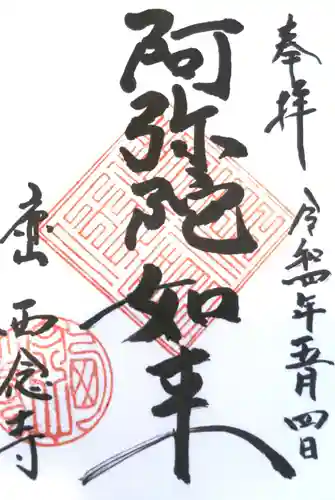 奉拝
令和四年五月四日
阿弥陀如来
西念寺